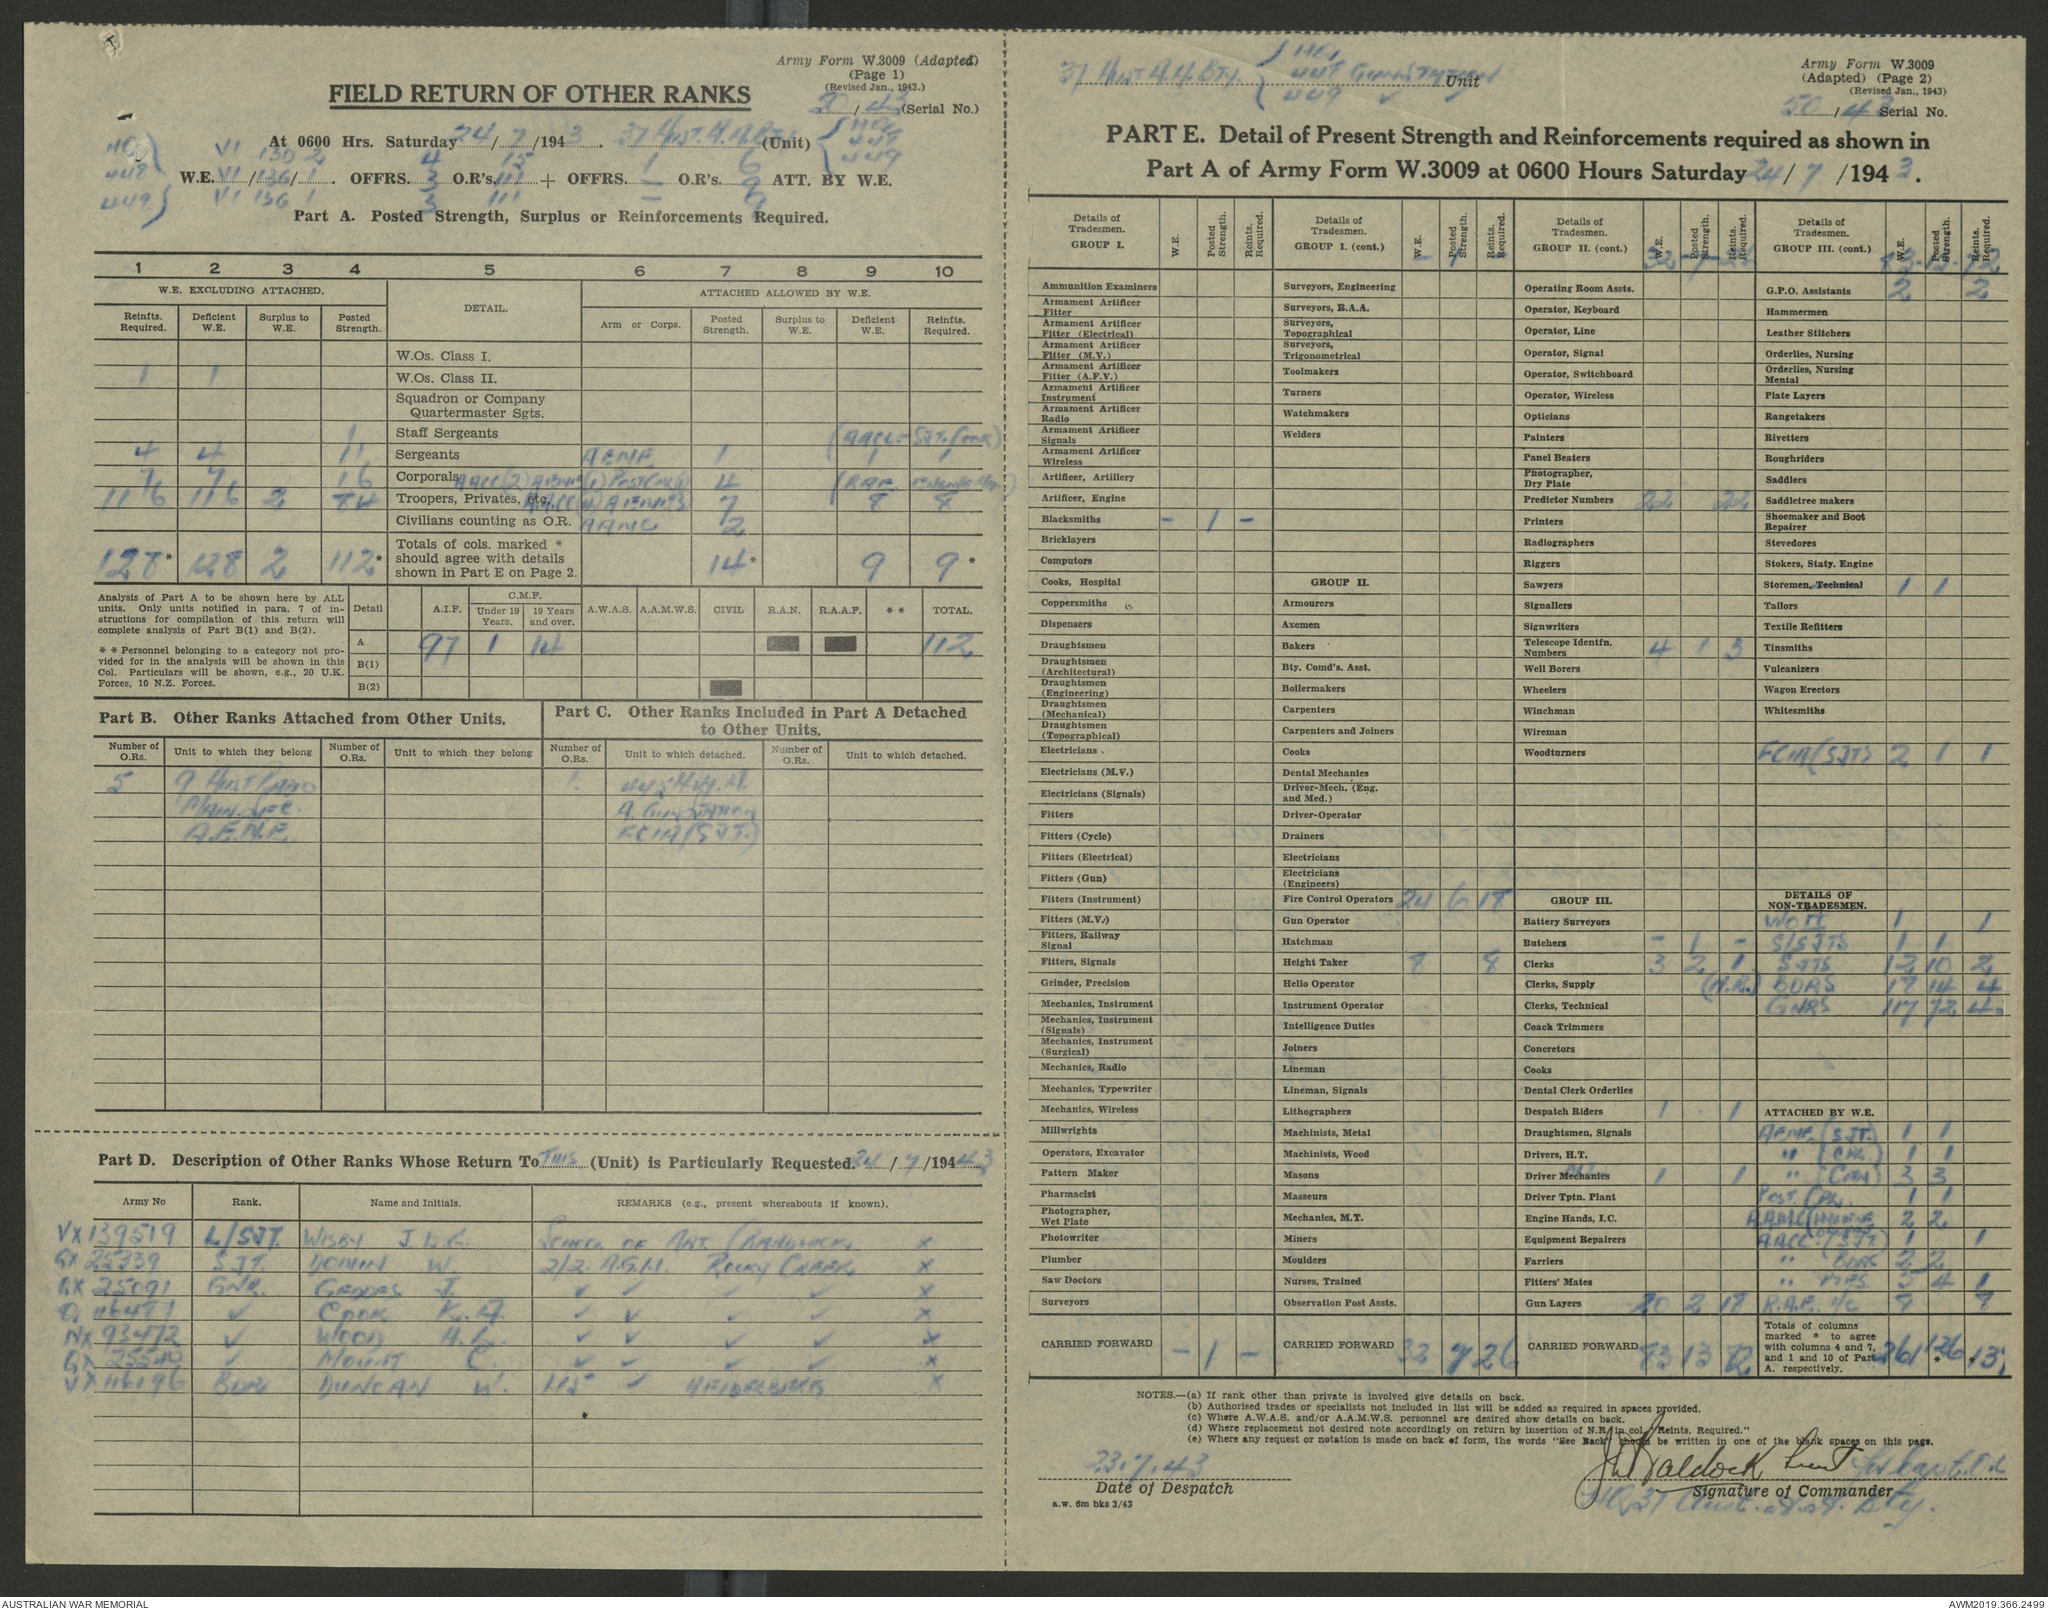 Army Form W.3009 (Adapted)
(Page 1)
(Revised Jan., 1943.)
FIELD RETURN OF OTHER RANKS
50/43 (Serial No.)
At 0600 Hrs. Saturday 24/7/1943. 37 Aust. A.A. Bty. (Unit) { HQ, 448 449
HQ } VI 130 2 4 15 1 6
448 W.E. VI/136/1. OFFRS. 3 O.R's. 111 + OFFRS. — O.R's. 9 ATT. BY W.E.
449 } VI 136 1 3 111 — 9
Part A. Posted Strength, Surplus or Reinforcements Required.
1 2 3 4 5 6 7 8 9 10
W.E. EXCLUDING ATTACHED. DETAIL. ATTACHED ALLOWED BY W.E.
Reinfts. Required. Deficient W.E. Surplus to W.E. Posted Strength. Arm or Corps. Posted Strength. Surplus to W.E. Deficient W.E. Reinfts. Required.
W.Os. Class I.
1 1 W.Os. Class II.
Squadron or Company Quartermaster Sgts.
1 Staff Sergeants (AACC - SJT. Cook)
4 4 11 Sergeants AEME 1 1 1
7 7 16 Corporals AACC (2) AEME (1) Post Cpl (1) 4
116 116 2 84 Troopers, Privates, etc. AACC (4) AEME (3) 7 8 8
Civilians counting as O.R. AAMC 2
128* 128 2 112* Totals of cols. marked * should agree with details shown in Part E on Page 2. 14* 9 9*
Analysis of Part A to be shown here by ALL units. Only units notified in para. 7 of instructions for compilation of this return will complete analysis of Part B(1) and B(2).
* * Personnel belonging to a category not provided for in the analysis will be shown in this Col. Particulars will be shown, e.g., 20 U.K. Forces, 10 N.Z. Forces.
Detail A.I.F. C.M.F. Under 19 Years. 19 Years and over. A.W.A.S. A.A.M.W.S. CIVIL R.A.N. R.A.A.F. * * TOTAL.
A 97 1 14 112
B(1)
B(2)
Part B. Other Ranks Attached from Other Units.
Part C. Other Ranks Included in Part A Detached to Other Units.
Number of O.Rs. Unit to which they belong Number of O.Rs. Unit to which they belong Number of O.Rs. Unit to which detached. Number of O.Rs. Unit to which detached.
5 9 Aust Radio 1.
A. Gunstation
A.E.M.E. (SJT.)
Part D. Description of Other Ranks Whose Return To This (Unit) is Particularly Requested. 24/7/1943
Army No Rank. Name and Initials. REMARKS (e.g., present whereabouts if known).
VX139519 L/SJT. WISBY J.L.C. SCHOOL OF ART. (RANDWICK) X
QX 25339 SJT. W. 2/2 A.G.H. ROCKY CREEK X
QX 25091 GNR. GEDDES J. ✓ ✓ ✓ ✓ X
Q. 116491 ✓ COOK K.A. ✓ ✓ ✓ ✓ X
NX 93472 ✓ WOOD A.L. ✓ ✓ ✓ ✓ X
QX 25540 ✓ MOUNT C. ✓ ✓ ✓ ✓ X
VX 116196 BDR DUNCAN W. 115 ✓ HEIDELBERG X
37 Aust A.A. Bty. { HQ, 448 Gunstation 449 Unit
Army Form W.3009
(Adapted) (Page 2)
(Revised Jan., 1943)
50/43 Serial No.
PART E. Detail of Present Strength and Reinforcements required as shown in
Part A of Army Form W.3009 at 0600 Hours Saturday 24/7/1943.
Details of Tradesmen. GROUP I. W.E. Posted Strength. Reints. Required.
Ammunition Examiners
Armament Artificer Fitter
Armament Artificer Fitter (Electrical)
Armament Artificer Fitter (M.V.)
Armament Artificer Fitter (A.F.V.)
Armament Artificer Instrument
Armament Artificer Radio
Armament Artificer Signals
Armament Artificer Wireless
Artificer, Artillery
Artificer, Engine
Blacksmiths – 1 –
Bricklayers
Computors
Cooks, Hospital
Coppersmiths
Dispensers
Draughtsmen
Draughtsmen (Architectural)
Draughtsmen (Engineering)
Draughtsmen (Mechanical)
Draughtsmen (Topographical)
Electricians
Electricians (M.V.)
Electricians (Signals)
Fitters
Fitters (Cycle)
Fitters (Electrical)
Fitters (Gun)
Fitters (Instrument)
Fitters (M.V.)
Fitters, Railway Signal
Fitters, Signals
Grinder, Precision
Mechanics, Instrument
Mechanics, Instrument (Signals)
Mechanics, Instrument (Surgical)
Mechanics, Radio
Mechanics, Typewriter
Mechanics, Wireless
Millwrights
Operators, Excavator
Pattern Maker
Pharmacist
Photographer, Wet Plate
Photowriter
Plumber
Saw Doctors
Surveyors
CARRIED FORWARD – 1 –
Details of Tradesmen. GROUP I. (cont.) W.E. Posted Strength. Reints. Required.
– 1 –
Surveyors, Engineering
Surveyors, R.A.A.
Surveyors, Topographical
Surveyors, Trigonometrical
Toolmakers
Turners
Watchmakers
Welders
GROUP II.
Armourers
Axemen
Bakers
Bty. Comd's. Asst.
Boilermakers
Carpenters
Carpenters and Joiners
Cooks
Dental Mechanics
Driver-Mech. (Eng. and Med.)
Driver-Operator
Drainers
Electricians
Electricians (Engineers)
Fire Control Operators 24 6 18
Gun Operator
Hatchman
Height Taker 8 8
Helio Operator
Instrument Operator
Intelligence Duties
Joiners
Lineman
Lineman, Signals
Lithographers
Machinists, Metal
Machinists, Wood
Masons
Masseurs
Mechanics, M.T.
Miners
Moulders
Nurses, Trained
Observation Post Assts.
CARRIED FORWARD 32 7 26
Details of Tradesmen. GROUP II. (cont.) W.E. Posted Strength. Reints. Required.
32 7 26
Operating Room Assts.
Operator, Keyboard
Operator, Line
Operator, Signal
Operator, Switchboard
Operator, Wireless
Opticians
Painters
Panel Beaters
Photographer, Dry Plate
Predictor Numbers 22 22
Printers
Radiographers
Riggers
Sawyers
Signallers
Signwriters
Telescope Identfn. Numbers 4 1 3
Well Borers
Wheelers
Winchman
Wireman
Woodturners
GROUP III.
Battery Surveyors
Butchers – 1 –
Clerks 3 2 1
Clerks, Supply (N.R.)
Clerks, Technical
Coach Trimmers
Concretors
Cooks
Dental Clerk Orderlies
Despatch Riders 1 1
Draughtsmen, Signals
Drivers, H.T.
Driver Mechanics 1 1
Driver Tptn. Plant
Engine Hands, I.C.
Equipment Repairers
Farriers
Fitters' Mates
Gun Layers 20 2 18
CARRIED FORWARD 83 13 72
Details of Tradesmen. GROUP III. (cont.) W.E. Posted Strength. Reints. Required.
83 13 72
G.P.O. Assistants 2 2
Hammermen
Leather Stitchers
Orderlies, Nursing
Orderlies, Nursing Mental
Plate Layers
Rangetakers
Rivetters
Roughriders
Saddlers
Saddletree makers
Shoemaker and Boot Repairer
Stevedores
Stokers, Staty. Engine
Storemen, Technical 1 1
Tailors
Textile Refitters
Tinsmiths
Vulcanizers
Wagon Erectors
Whitesmiths
(SJT) 2 1 1
DETAILS OF NON-TRADESMEN.
WO II 1 1
S/SJTS 1 1
SJTS 12 10 2
BDRS 17 14 4
GNRS 117 72 4
ATTACHED BY W.E.
AEME (SJT.) 1 1
" (CPL.) 1 1
" (CFN) 3 3
Post. CPL. 1 1
A.A.M.C. 2 2
AACC (SJT) 1 1
" BDRS 2 2
" PTES. 5 4 1
R.A.E. 8 8
Totals of columns marked * to agree with columns 4 and 7, and 1 and 10 of Part A. respectively. 261 126 * 13
NOTES.—(a) If rank other than private is involved give details on back.
(b) Authorised trades or specialists not included in list will be added as required in spaces provided.
(c) Where A.W.A.S. and/or A.A.M.W.S. personnel are desired show details on back.
(d) Where replacement not desired note accordingly on return by insertion of N.R. in col. "Reints. Required."
(e) Where any request or notation is made on back of form, the words "See Back" should be written in one of the blank spaces on this page.
23.7.43
Date of Despatch
a.w. 6m bks 3/43
Baldock Lieut for Capt. O.C.
Signature of Commander
HQ, 37 Aust. A.A. Bty.
AUSTRALIAN WAR MEMORIAL
AWM2019.366.2499